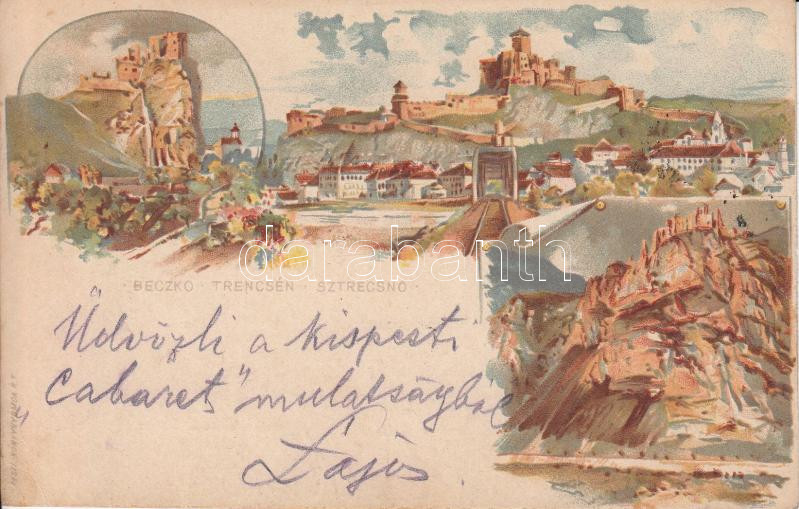 BECZKO · TRENCSÉN · SZTRECSNO
Üdvözli a kispesti
„Cabaret" mulatságból
Lajos
darabanth